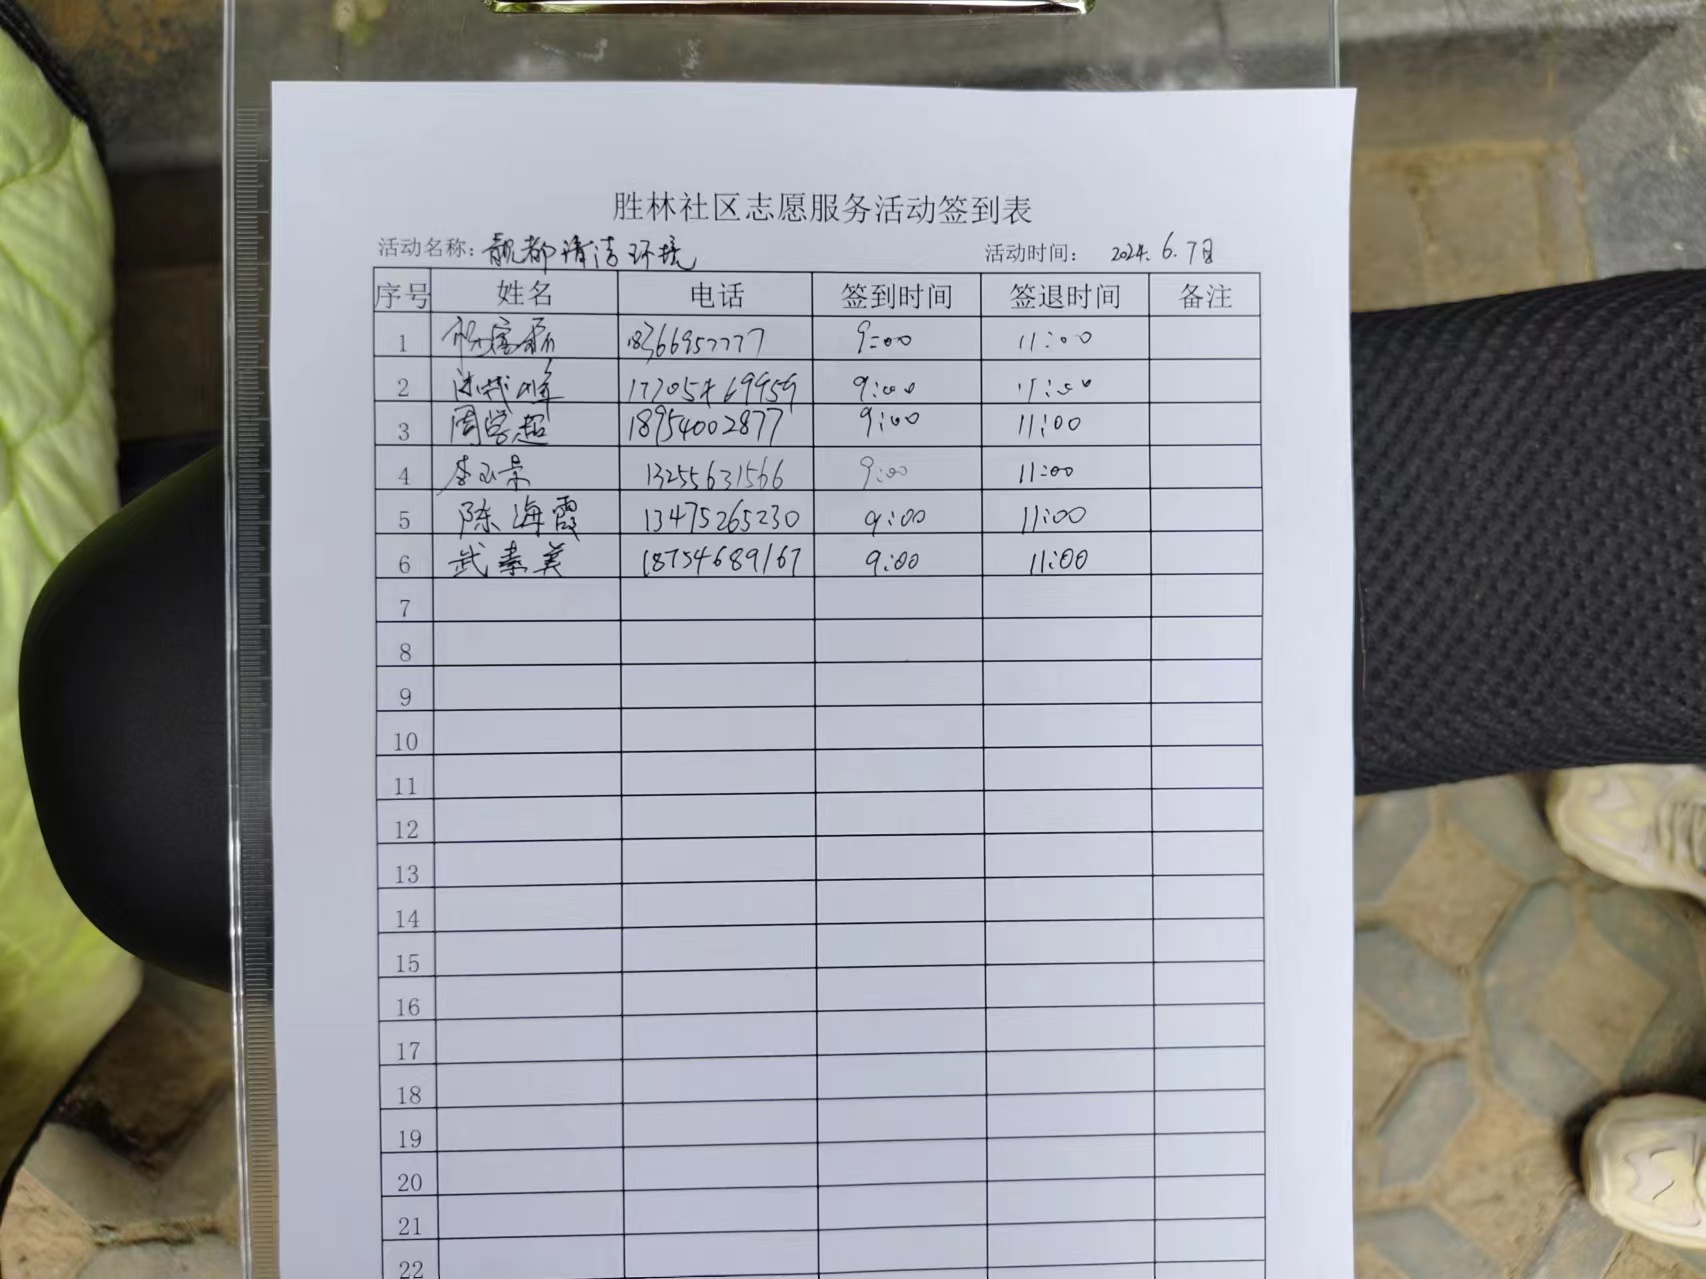 胜林社区志愿服务活动签到表
活动名称：靓都清洁环境 活动时间： 2024.6.7日
序号 姓名 电话 签到时间 签退时间 备注
1 18366957777 9:00 11:00
2 9:00 11:00
3 周学超 18954002877 9:00 11:00
4 李玉景 13255631566 9:00 11:00
5 陈海霞 13475265230 9:00 11:00
6 武素美 18754689167 9:00 11:00
7
8
9
10
11
12
13
14
15
16
17
18
19
20
21
22